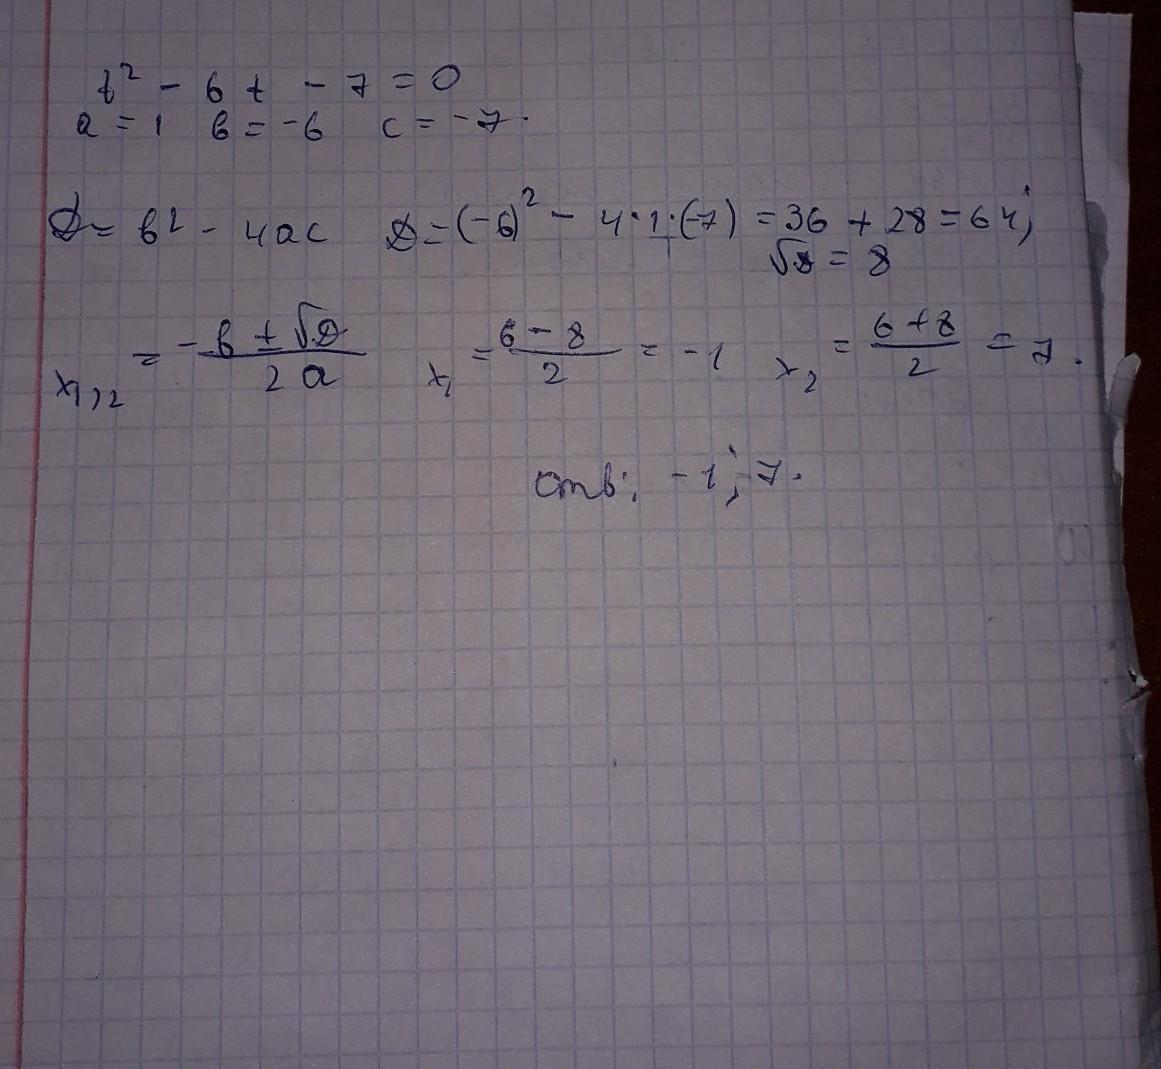 t² - 6t - 7 = 0
a = 1 в = -6 c = -7.
D = в² - 4ac D = (-6)² - 4·1·(-7) = 36 + 28 = 64;
√D = 8
x₁,₂ = -в ± √D / 2a x₁ = 6 - 8 / 2 = -1 x₂ = 6 + 8 / 2 = 7.
Отв: -1; 7.